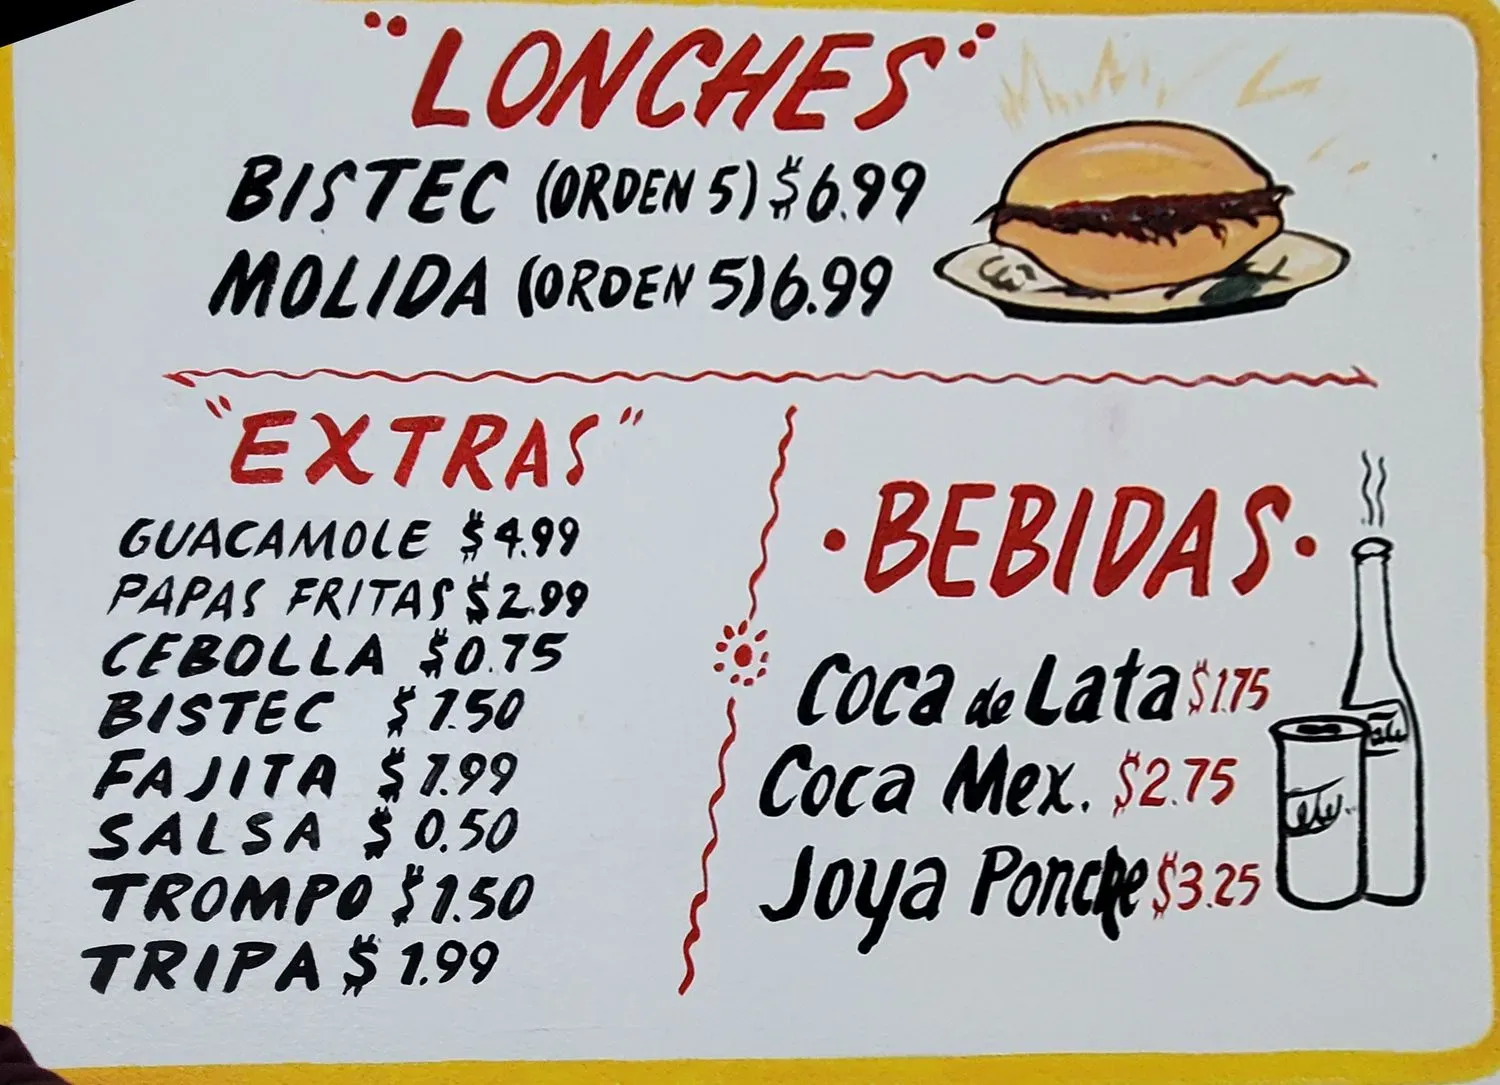 "LONCHES"
BISTEC (ORDEN 5) $6.99
MOLIDA (ORDEN 5) 6.99
"EXTRAS"
GUACAMOLE $4.99
PAPAS FRITAS $2.99
CEBOLLA $0.75
BISTEC $1.50
FAJITA $1.99
SALSA $0.50
TROMPO $1.50
TRIPA $1.99
•BEBIDAS•
Coca de Lata $1.75
Coca Mex. $2.75
Joya Ponche $3.25